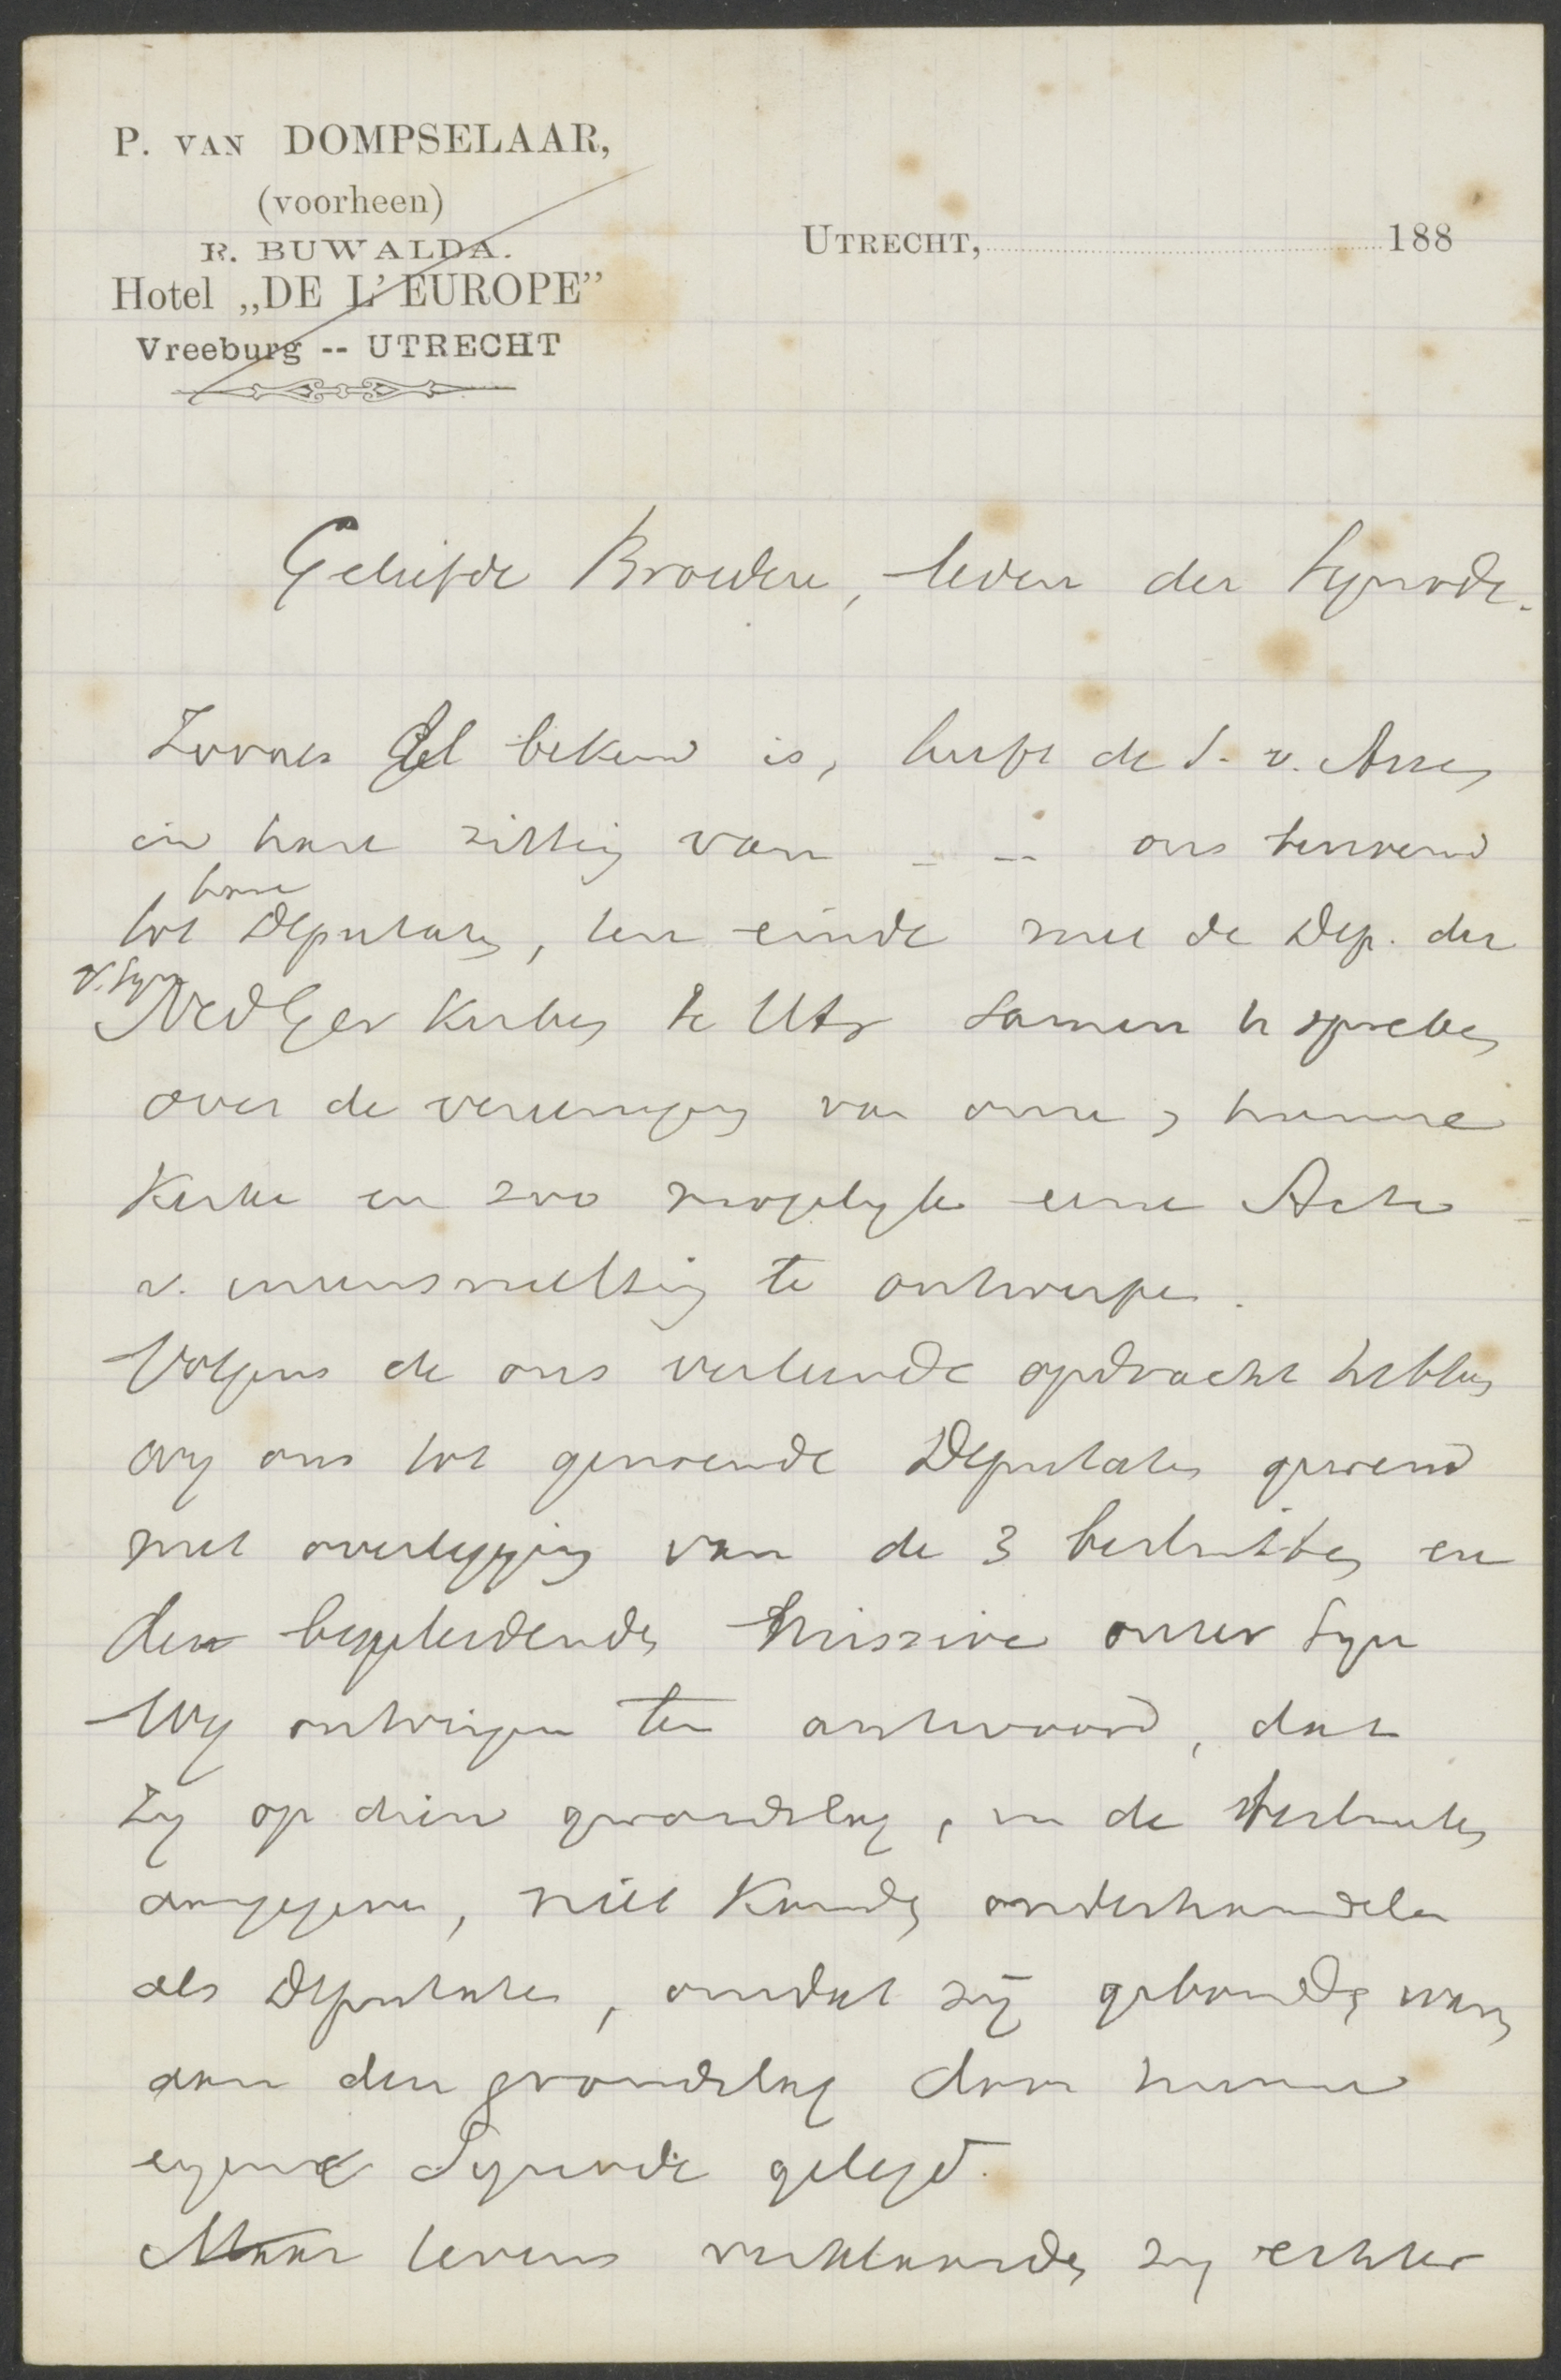 P. VAN DOMPSELAAR,
(voorheen)
R. BUWALDA.
Hotel „DE L'EUROPE”
Vreeburg -- UTRECHT
UTRECHT, 188
Geliefde Broeders, leden der Synode.
Zooals Gel bekend is, heeft de S. v. Assen
in hare zitting van _ _ ons benoemd
hare
tot Deputaten, ten einde met de Dep. der
v. Syn
Ned Ger Kerken te Utr samen te spreken
over de vereeniging van onze en hunne
Kerken en zoo mogelijk eene Acte
v. ineensmelting te ontwerpen.
Volgens de ons verleende opdracht hebben
wy ons tot genoemde Deputaten gewend
met overlegging van de 3 besluiten en
der begeleidende Missive onzer Syn
Wy ontvingen ten antwoord, dat
zy op dien grondslag, in de besluiten
aangegeven, niet konden onderhandelen
als Deputaten, omdat zij gebonden waren
aan den grondslag door hunne
eigene Synode gelegd.
Maar tevens verklaarden zy echter